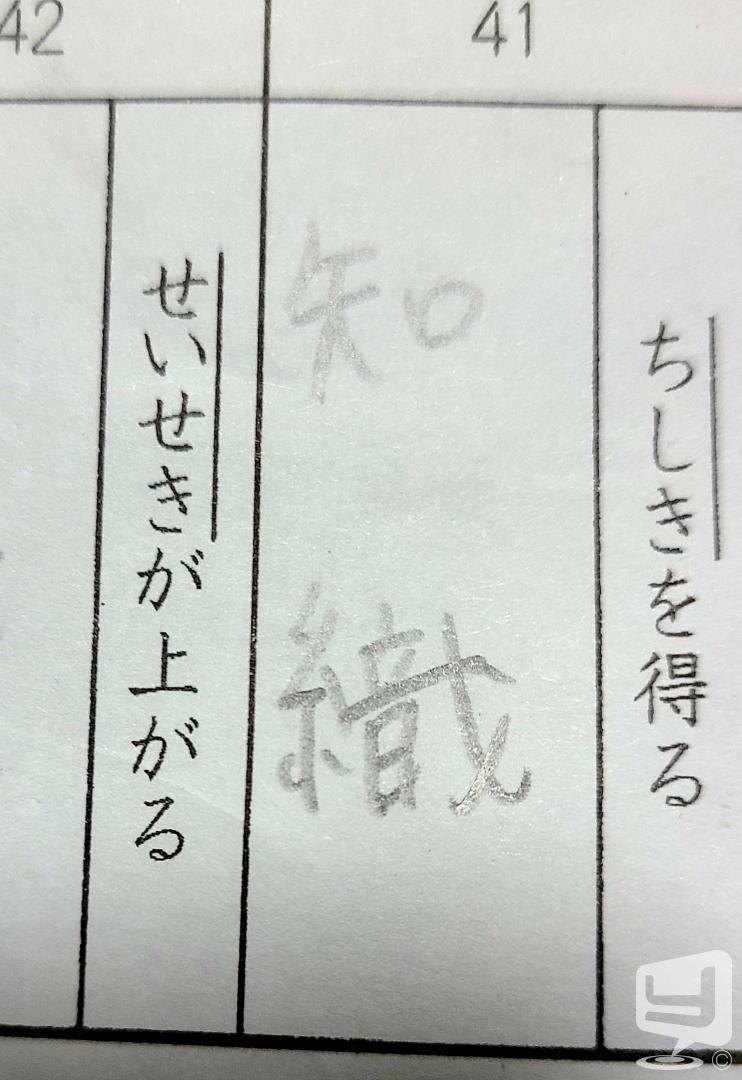 41
ちしきを得る
知織
42
せいせきが上がる